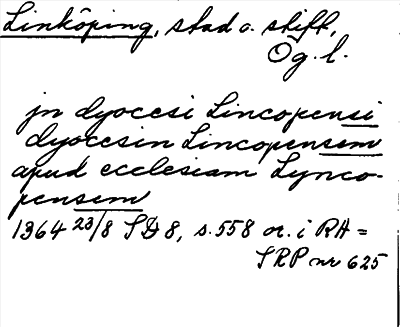 Linköping, stad o. stift,
Ög. l.
jn dyocesi Lincopensi
dyocesin Lincopensem
apud ecclesiam Lynco-
pensem
1364 23/8 SD 8, s. 558 or. i RA =
SRP nr 625